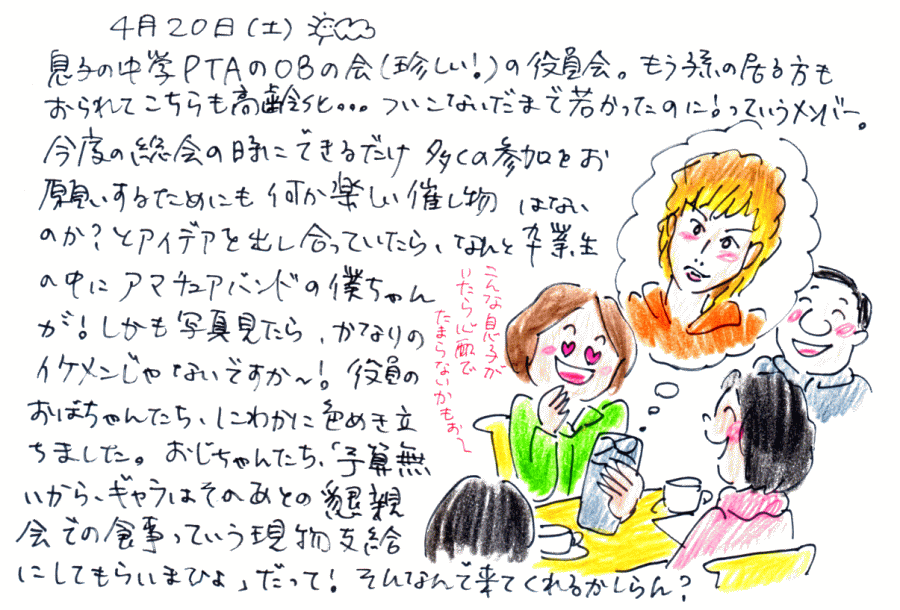 4月20日(土)
息子の中学PTAのOBの会(珍しい!)の役員会。もう孫の居る方も
おられてこちらも高齢化と...ついこないだまで若かったのに!っていうメンバー。
今度の総会の時にできるだけ多くの参加をお
願いするためにも何か楽しい催し物はない
のか?とアイデアを出し合っていたら、なんと卒業生
の中にアマチュアバンドの僕ちゃん
が!しかも写真見たら、かなりの
イケメンじゃないですか〜!役員の
おばちゃんたち、にわかに色めき立
ちました。おじちゃんたち、「予算無
いから、ギャラはそのあとの懇親
会での食事っていう現物支給
にしてもらいまひょ」だって!そんなんで来てくれるかしらん?
こんな息子が
いたら心配で
たまらないかもぉ〜